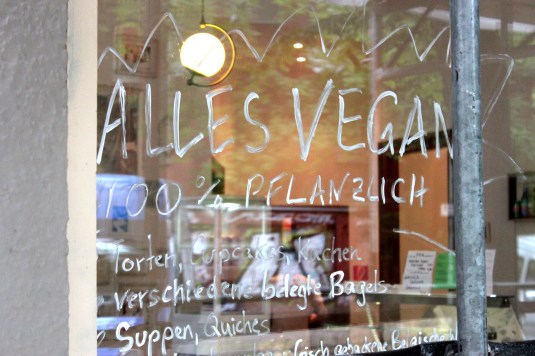 ALLES VEGAN
100% PFLANZLICH
Torten, Cupcakes, Kuchen
verschiedene belegte Bagels
Suppen, Quiches
frisch gebackene Belgische